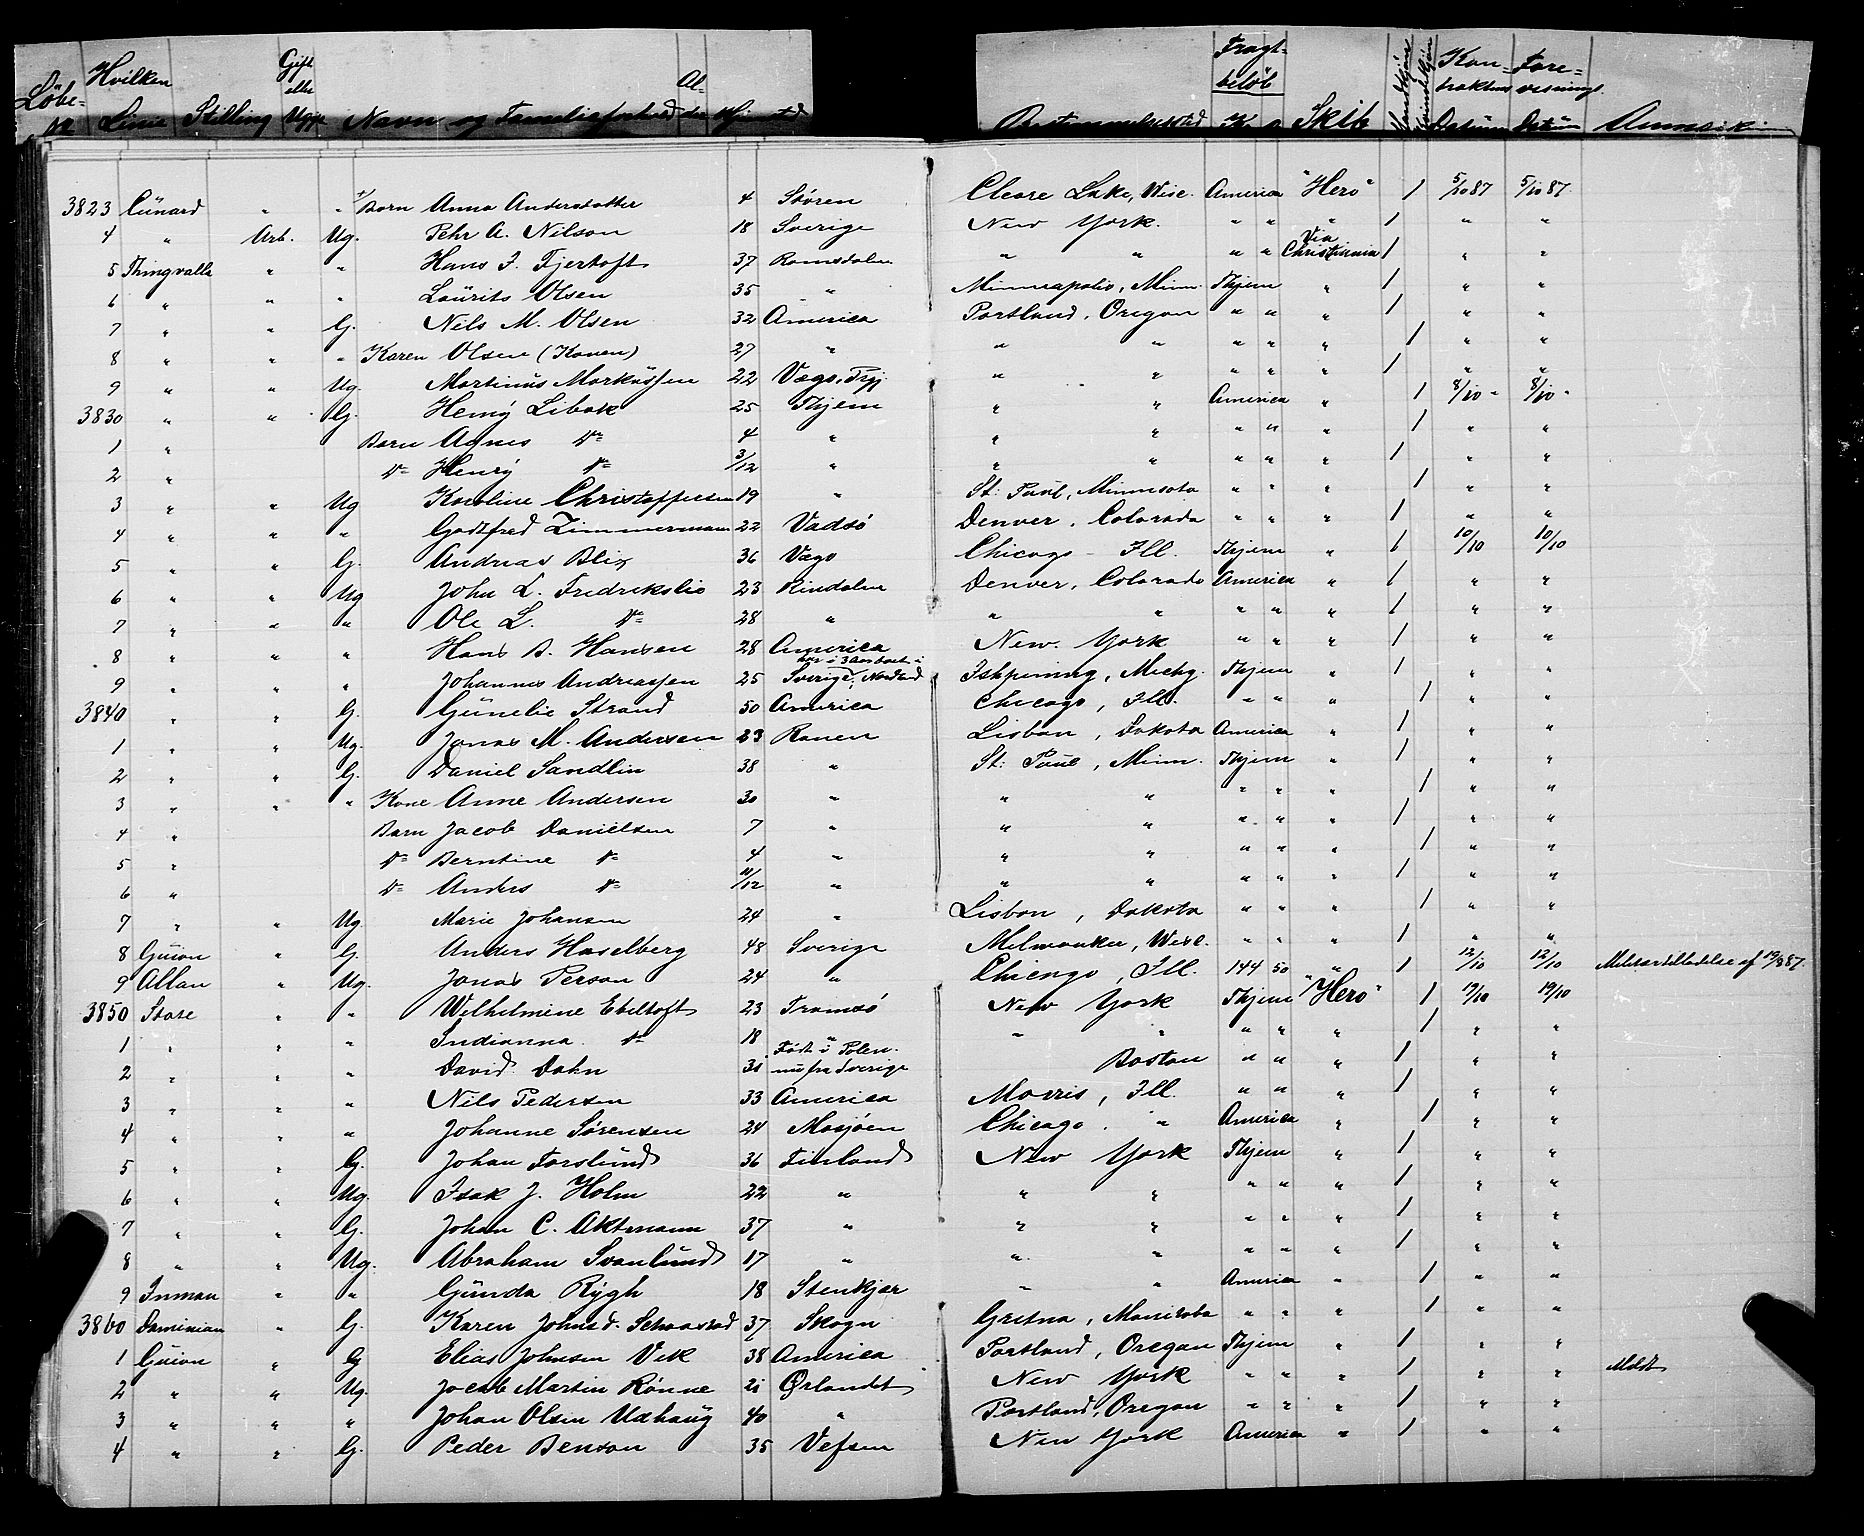 Löbe- Hvilken Linie Stilling Gift eller Ugift Navn og Familieforhold Al- der Hjemsted Bestemmelsessted Fragt- beløb Kr Ø Skib Mandkjøn Kvindekjøn Kon- trakten Datum Fore- visnings Datum Anmærk.
3823 Cunard " " Barn Anna Andersdatter 4 Støren Cleare Lake, Wisc. America "Hero" 1 5/10 87 5/10 87.
4 " Arb. Ug. Pehr A. Nilson 18 Sverige New York. " " " 1 " "
5 Thingvalla " " Hans J. Fjertoft 37 Romsdalen " " " " Via Christiania 1 " "
6 " " " Laurits Olsen 35 " Minneapolis, Minn. Thjem " 1 " "
7 " " G. Nils M. Olsen 32 America Portland, Oregon " " " 1 " "
8 " " " Karen Olsen (Konen) 27 " " " " " " 1 " "
9 " " Ug. Martinus Markussen 22 " " " " " 1 " "
3830 " " G. Henry Libak 25 Thjem " " America " 1 8/10 " 8/10 "
1 " Barn Agnes Do 4 " " " " " " 1 " "
2 " Do Henry Do 3/12 " " " " " " 1 " "
3 " " Ug Karoline Christophersen 19 " St: Paul, Minnesota " " " 1 " "
4 " " " Godtfred Zimmermann 22 Vadsö Denver, Colorado " " " 1 " "
5 " " G. Andreas Blix 36 Vægo Chicago - Ill. Thjem " 1 10/10 10/10
6 " " Ug John L. Fredrikslio 23 Rindalen Denver, Colorado America " 1 " "
7 " " " Ole L. Do 28 " " " " " " 1 " "
8 " " " Hans B. Hansen 28 America New York " " " 1 " "
9 " " " Johannes Andreassen 25 Sverige, Nordland Ishpeming, Michg. Thjem " 1 " "
3840 " " G. Gunelie Strand 50 America Chicago, Ill. " " " 1 " "
1 " " Ug. Jonas M. Andersen 23 Ranen Lisbon, Dakota America " 1 " "
2 " " G. Daniel Sandlin 38 " St: Paul, Minn. Thjem " 1 " "
3 " " " Kone Anne Andersen 30 " " " " " " 1 " "
4 " Barn Jacob Danielsen 7 " " " " " " 1 " "
5 " Do Berntine Do 4 " " " " " " 1 " "
6 " Do Anders Do 11/12 " " " " " " 1 " "
7 " " Ug. Marie Johansen 24 " Lisbon, Dakota " " " 1 " "
8 Guion " G. Anders Haselberg 48 Sverige Milwaukee, Wisc. " " " 1 " "
9 Allan " Ug. Jonas Person 24 " Chicago, Ill. 144 50 " 1 12/10 12/10 Militærtilladelse af
3850 State " " Wilhelmine Ebeltoft 23 Tromsö New York Thjem "Hero" 1 19/10 19/10
1 " " " Indianna Do 18 " " " " " " 1 " "
2 " " " David Dahn 31 Født i Polen. nu fra Sverige Boston " " " 1 " "
3 " " " Nils Pedersen 33 America Morris, Ill. " " " 1 " "
4 " " " Johanne Sørensen 24 Mosjøen Chicago. " America " 1 " "
5 " " G. Johan Forslund 36 Finland New York Thjem " 1 " "
6 " " Ug. Isak J. Holm 22 " " " " " " 1 " "
7 " " G. Johan C. Aktmann 37 " " " " " " 1 " "
8 " " Ug. Abraham Svanlund 17 " " " " " " 1 " "
9 Inman " " Gunda Rygh 18 Stenkjær " " America " 1 " "
3860 Dominian " G. Karen Johnsd. 37 Skogn Gretna, Manitoba " " " 1 " "
1 Guion " G Elias Johnsen Vik 38 America Portland, Oregan Thjem " 1 " "
2 " " Ug. Jacob Martin Rönne 21 Ørlandet New York " " " 1 " " Meldt
3 " " " Johan Olsen Uxhaug 40 " Portland, Oregon " " " 1 " "
4 " " G. Peder Benson 35 Vefsen New York America " 1 " "